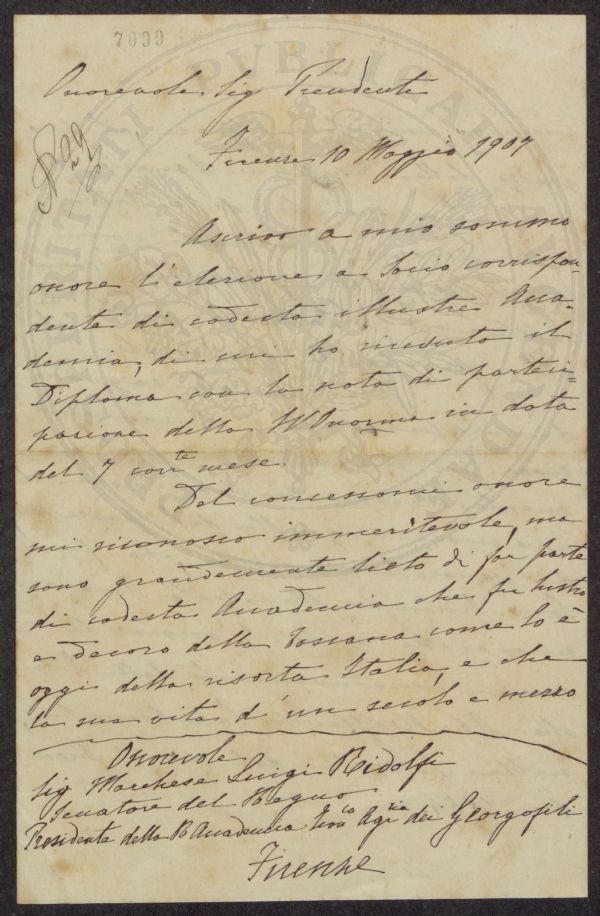 7099
Onorevole Sig Presidente
N 29
Firenze 10 Maggio 1907
Ascrivo a mio sommo
onore l'elezione a Socio corrispon-
dente di codesta illustre Acca-
demia, di cui ho ricevuto il
Diploma con la nota di parteci=
pazione della in data
del 7 corrte mese.
Del concessomi onore
mi riconosco immeritevole, ma
sono grandemente lieto di far parte
di codesta Accademia che fu lustro
e decoro della Toscana come lo è
oggi della risorta Italia, e che
la sua vita d'un secolo e mezzo
Onorevole
Sig Marchese Luigi Ridolfi
Senatore del Regno
Presidente della R Accademia Eca Agria dei Georgofili
Firenze